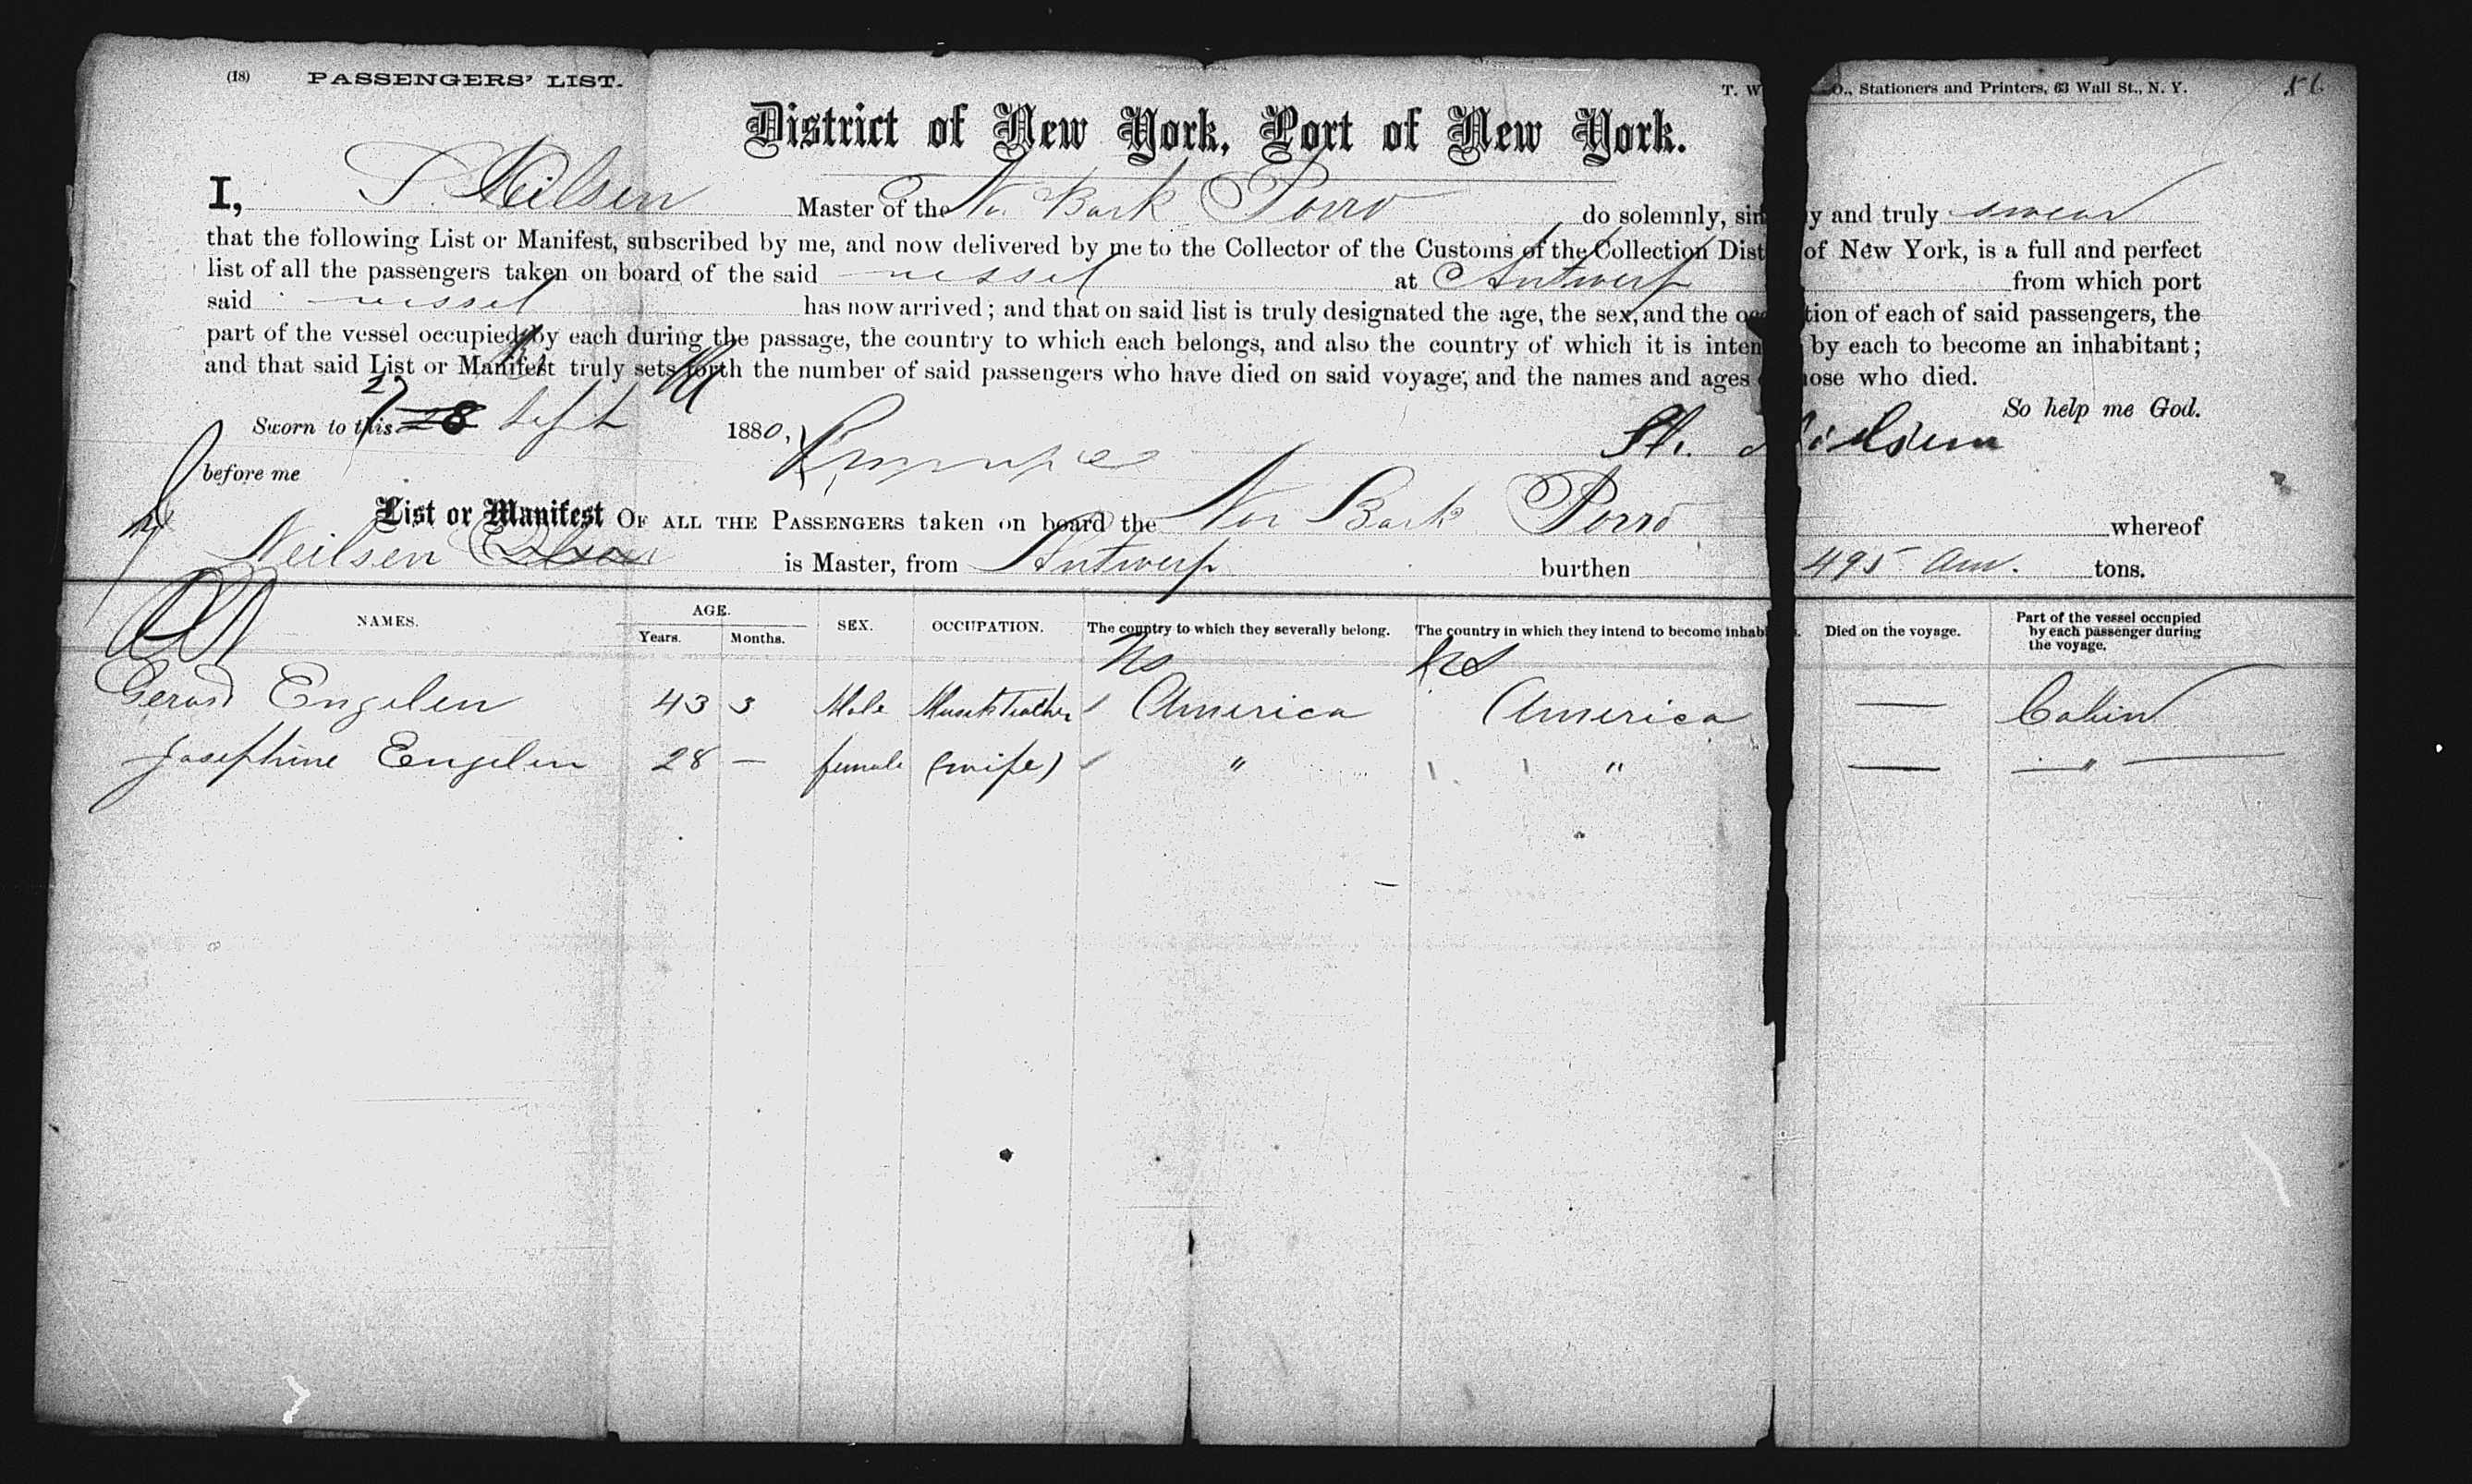 (18) PASSENGERS' LIST.
T. W O., Stationers and Printers, 63 Wall St., N. Y.
District of New York, Port of New York.
I, Neilsen Master of the Nor Bark Porro do solemnly, sin y and truly swear
that the following List or Manifest, subscribed by me, and now delivered by me to the Collector of the Customs of the Collection Dist of New York, is a full and perfect
list of all the passengers taken on board of the said vessel at Antwerp from which port
said vessel has now arrived; and that on said list is truly designated the age, the sex, and the oc tion of each of said passengers, the
part of the vessel occupied by each during the passage, the country to which each belongs, and also the country of which it is inten by each to become an inhabitant;
and that said List or Manifest truly sets forth the number of said passengers who have died on said voyage, and the names and ages hose who died.
So help me God.
27
Sworn to this 28 Sept 1880,
before me
List or Manifest OF ALL THE PASSENGERS taken on board the Nor Bark Porro whereof
Neilsen is Master, from Antwerp burthen 495 Am. tons.
NAMES. AGE. Years. Months. SEX. OCCUPATION. The country to which they severally belong. The country in which they intend to become inhab s. Died on the voyage. Part of the vessel occupied by each passenger during the voyage.
Engelen 43 3 Male America America — Cabin
Josephine Engelen 28 — female (wife) " " — "